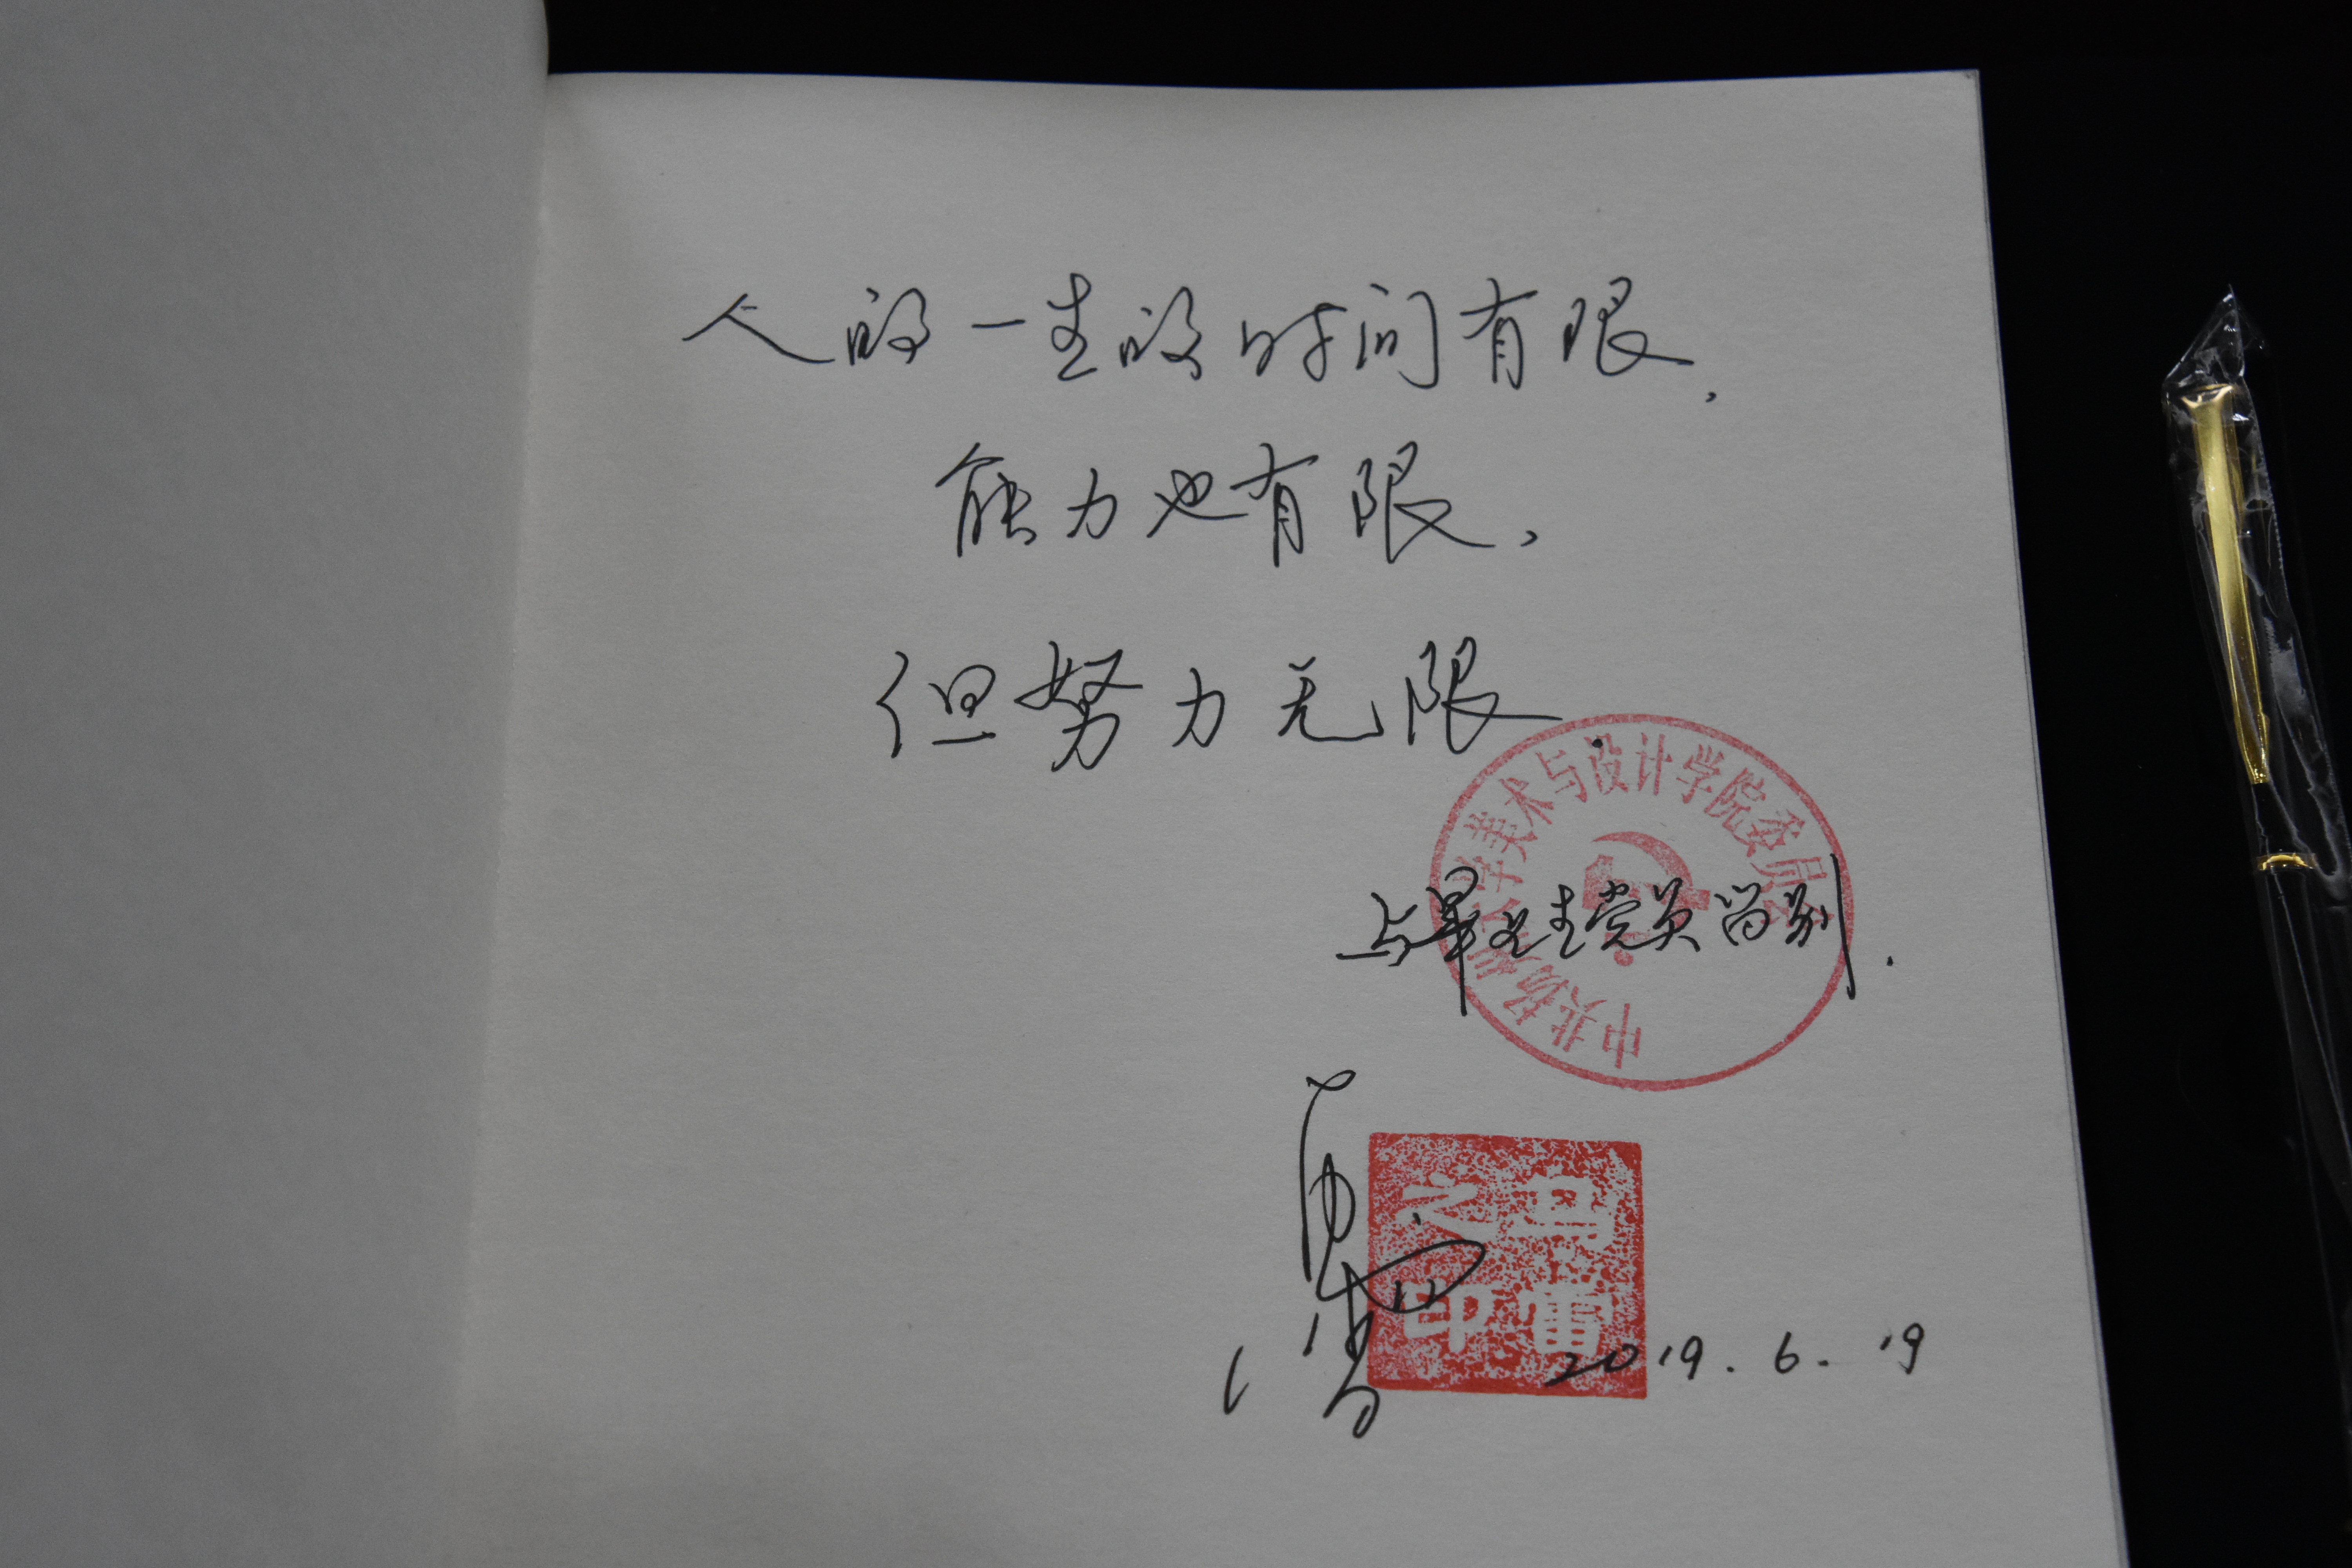 人的一生的时间有限，
能力也有限，
但努力无限．
中共扬州大学美术与设计学院委员会
与毕业生党员留别．
之印
2019.6.19